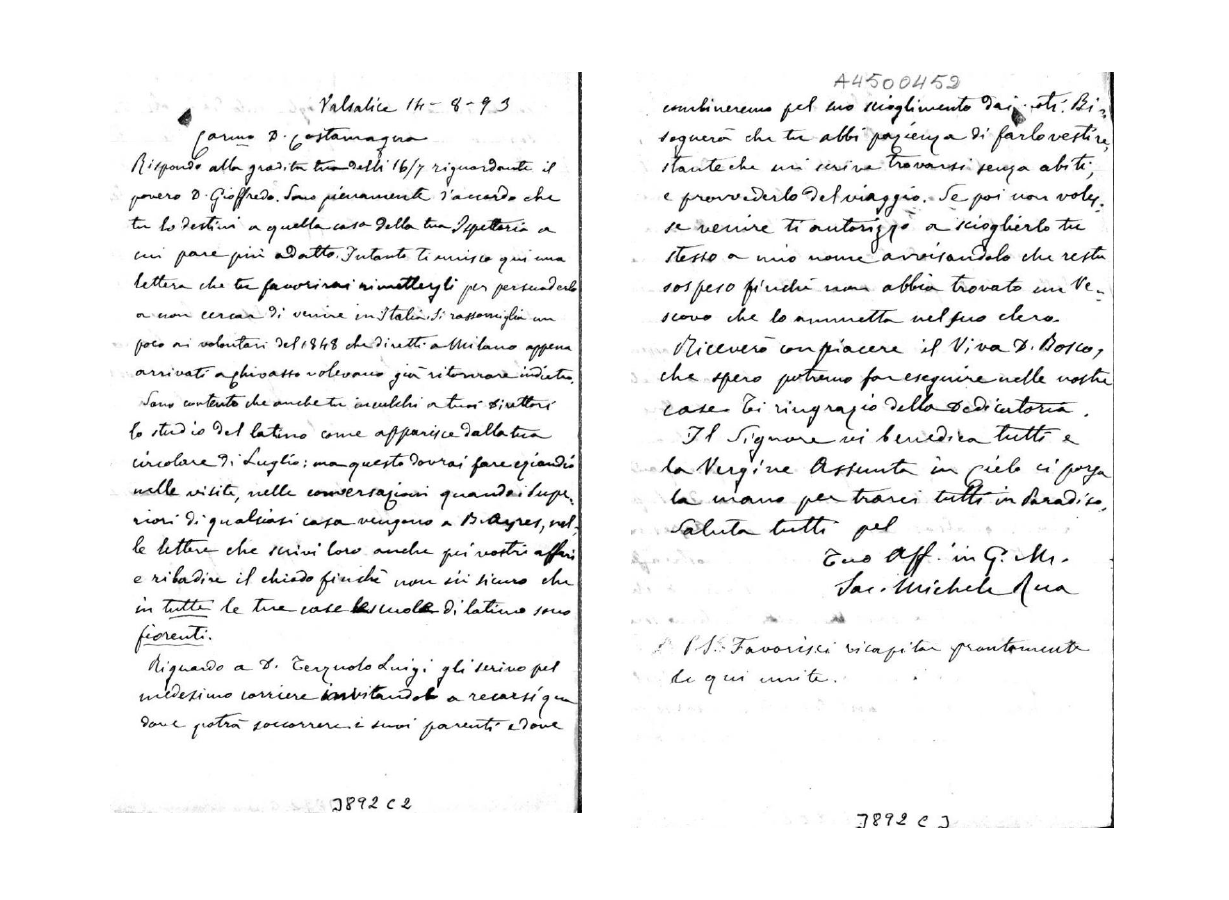 Valsalice 14-8-93
Carmo D. Costamagna
Rispondo alla gradita tua delli 16/7 riguardante il
povero D. Gioffredo. Sono pienamente d'accordo che
tu lo destini a quella casa della tua Ispettoria a
cui pare più adatto. Intanto ti unisco qui una
lettera che tu favorirai rimettergli per persuaderlo
a non cercar di venire in Italia. Si rassomiglia un
poco ai volontari del 1848 che diretti a Milano appena
arrivati a Chivasso volevano già ritornare indietro.
Sono contento che anche tu inculchi a tuoi Direttori
lo studio del latino come apparisce dalla tua
circolare di Luglio: ma questo dovrai fare eziandio
nelle visite, nelle conversazioni quando i Supe-
riori di qualsiasi casa vengono a B. Ayres, nel-
le lettere che scrivi loro anche pei vostri affari
e ribadire il chiodo finchè non sii sicuro che
in tutte le tue case le scuole di latino sono
fiorenti.
Riguardo a D. Terzuolo Luigi gli scrivo pel
medesimo corriere invitandolo a recarsi qua
dove potrà soccorrere i suoi parenti e dove
J892 C 2
A4500452
combineremo pel suo scioglimento dai voti. Bi-
sognerà che tu abbi pazienza di farlo vestire,
stante che mi scrive trovarsi senza abiti,
e provvederlo del viaggio. Se poi non voles-
se venire ti autorizzo a scioglierlo tu
stesso a mio nome avvisandolo che resta
sospeso finchè non abbia trovato un Ve-
scovo che lo ammetta nel suo clero.
Riceverò con piacere il Viva D. Bosco,
che spero potremo far eseguire nelle nostre
case. Ti ringrazio della Dedicatoria.
Il Signore vi benedica tutti e
la Vergine Assunta in Cielo ci porga
la mano per trarci tutti in Paradiso.
Saluta tutti pel
Tuo Aff. in G. M.
Sac. Michele Rua
PS. Favorisci ricapitar prontamente
le qui unite.
J892 C 3